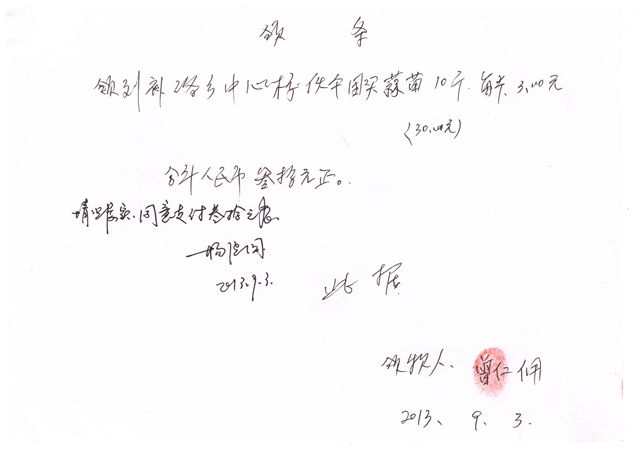 领 条
领到 乡中心校伙食团买蒜苗10斤. 每斤3.00元
(30.00元)
合计人民币叁拾元正。
情况属实.同意支付叁拾元
2013.9.3.
此 据
领款人. 曾仁
2013、 9. 3.